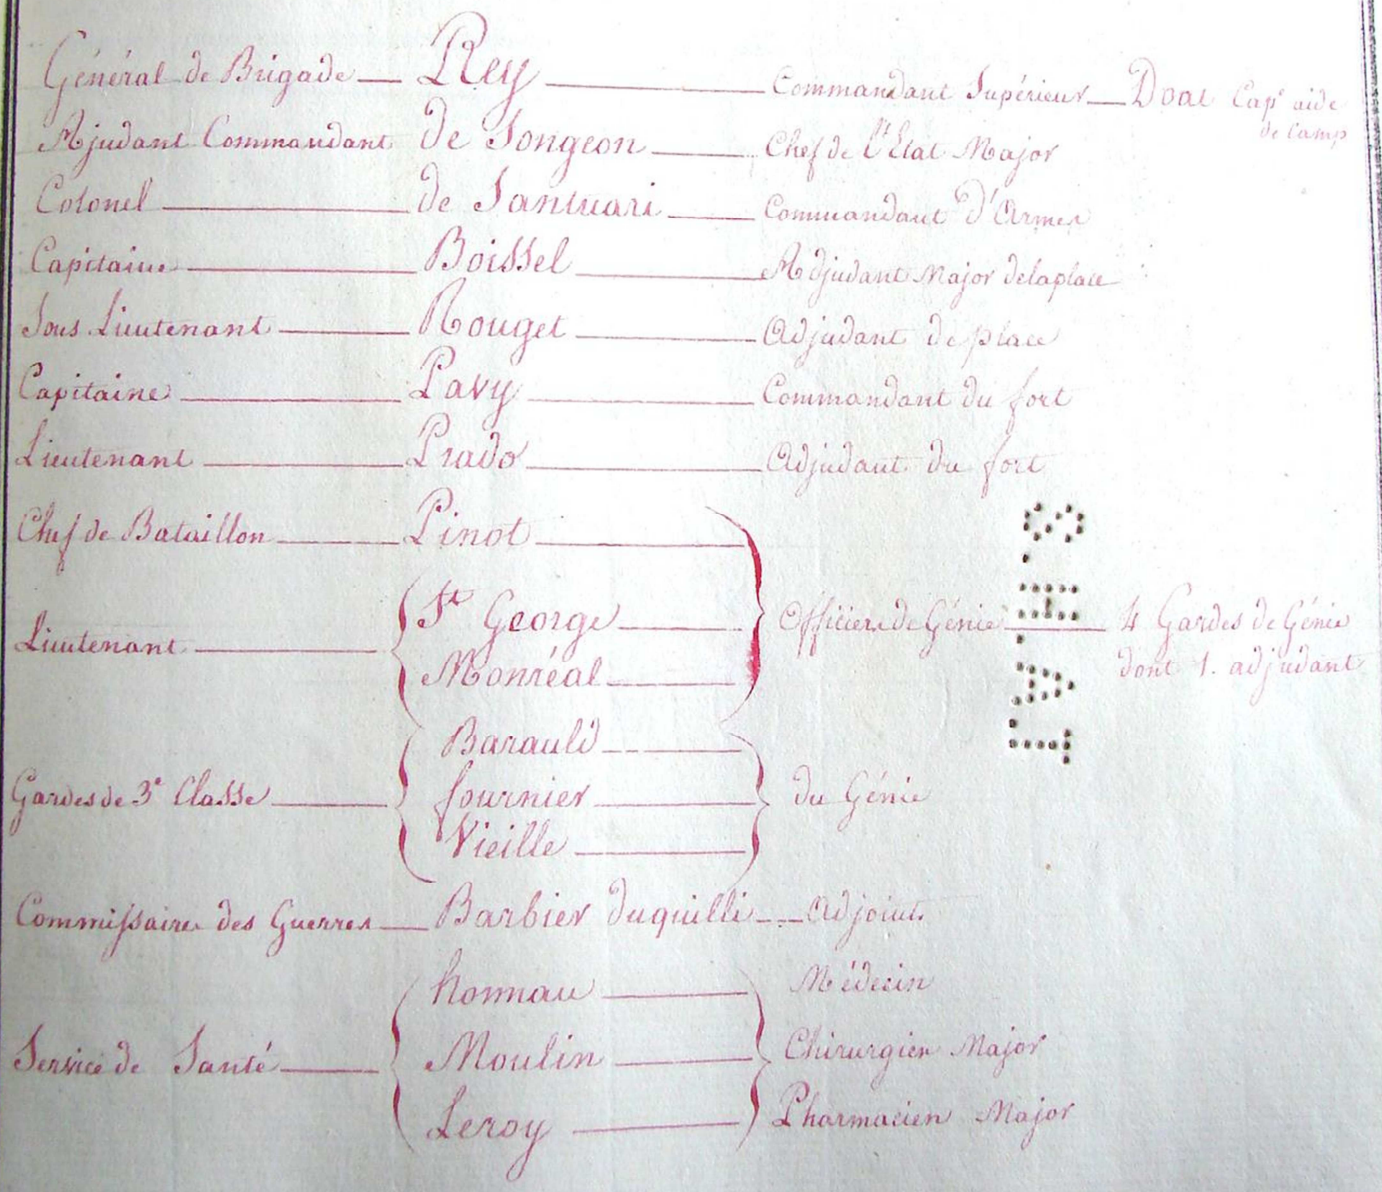 Général de Brigade Rey Commandant Supérieur Doat Cap.e aide
de Camp
Adjudant Commandant de Songeon Chef de l'Etat Major
Colonel de Santuari Commandant d'Armes
Capitaine Boissel Adjudant Major de la place
Sous Lieutenant Rouget Adjudant de place
Capitaine Pavy Commandant du fort
Lieutenant Prado Adjudant du fort
Chef de Bataillon Pinot
Lieutenant St George Officiers de Génie 4 Gardes de Génie
Monréal dont 1. adjudant
Barauld
Gardes de 3e Classe fournier du Génie
Vieille
Commissaire des Guerres Barbier duquilli Adjoint
honnau Médecin
Service de Santé Moulin Chirurgien Major
Leroy Pharmacien Major
S.H.A.T